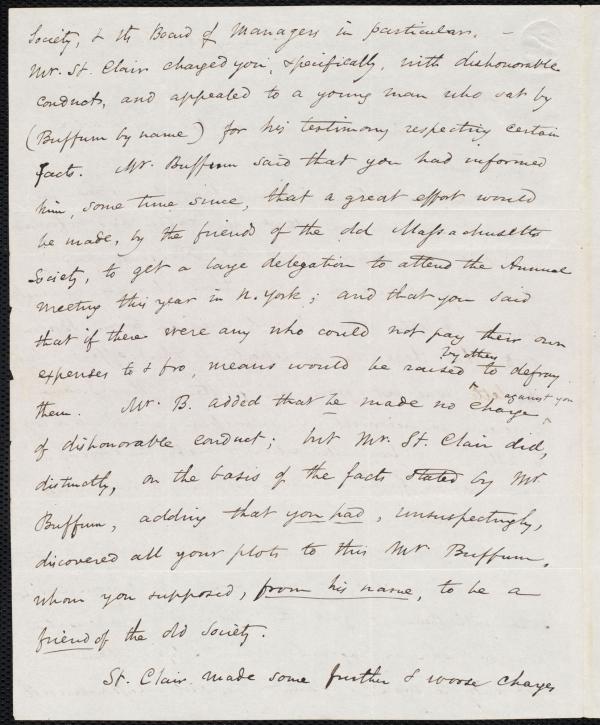 Society, & its Board of Managers in particular. –
Mr. St. Clair charged you, specifically, with dishonorable
conduct, and appealed to a young man who sat by
(Buffum by name) for his testimony respecting certain
facts. Mr. Buffum said that you had informed
him, some time since, that a great effort would
be made, by the friends of the old Massachusetts
Society, to get a large delegation to attend the Annual
meeting this year in N. York; and that you said
that if there were any who could not pay their own
expenses to & fro, means would be raised by others to defray
them. Mr. B. added that he made no charge against you
of dishonorable conduct; but Mr. St. Clair did,
distinctly, on the basis of the facts stated by Mr
Buffum, adding that you had, unsuspectingly,
discovered all your plots to this Mr Buffum,
whom you supposed, from his name, to be a
friend of the old Society.
St. Clair made some further & worse charges